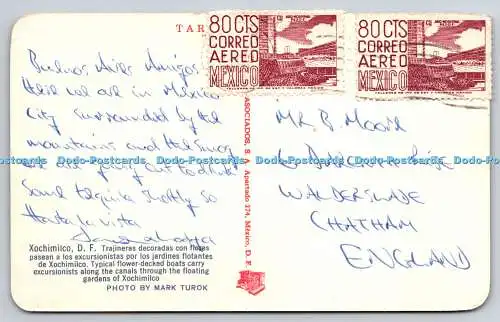 TAR
80 CTS
CORREO
AEREO
MEXICO
80 CTS
CORREO
AEREO
MEXICO
Buenos Aires Amigos
Well we are in Mexico
City surrounded by the
mountains and the smog
we are going out to drink
some tequila shortly so
Hasta la vista
Xochimilco, D. F. Trajineras decoradas con flores
pasean a los excursionistas por los jardines flotantes
de Xochimilco. Typical flower-decked boats carry
excursionists along the canals through the floating
gardens of Xochimilco
PHOTO BY MARK TUROK
ASOCIADOS, S. A. Apartado 274, México, D. F.
MR B. Moore
6
WALDERSLADE
CHATHAM
ENGLAND
Dodo-Postcards Dodo-Postcards Dodo-Postcards Dodo-Postcards Dodo-Postcards